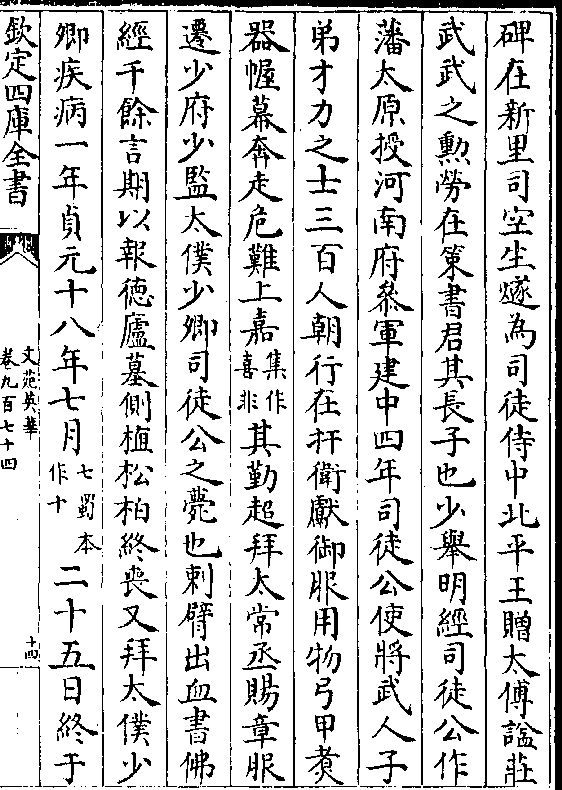 碑在新里司空生燧為司徒侍中北平王贈太傅諡莊
武武之勲勞在策書君其長子也少舉明經司徒公作
藩太原授河南府叅軍建中四年司徒公使將武人子
弟才力之士三百人朝行在扞衛獻御服用物弓甲煑
器幄幕奔走危難上嘉集作喜非其勤超拜太常丞賜章服
遷少府少監太僕少卿司徒公之薨也刺臂出血書佛
經千餘言期以報德廬墓側植松柏終喪又拜太僕少
卿疾病一年貞元十八年七月七蜀本作十二十五日終于
欽定四庫全書
文苑英華
卷九百七十四
十四